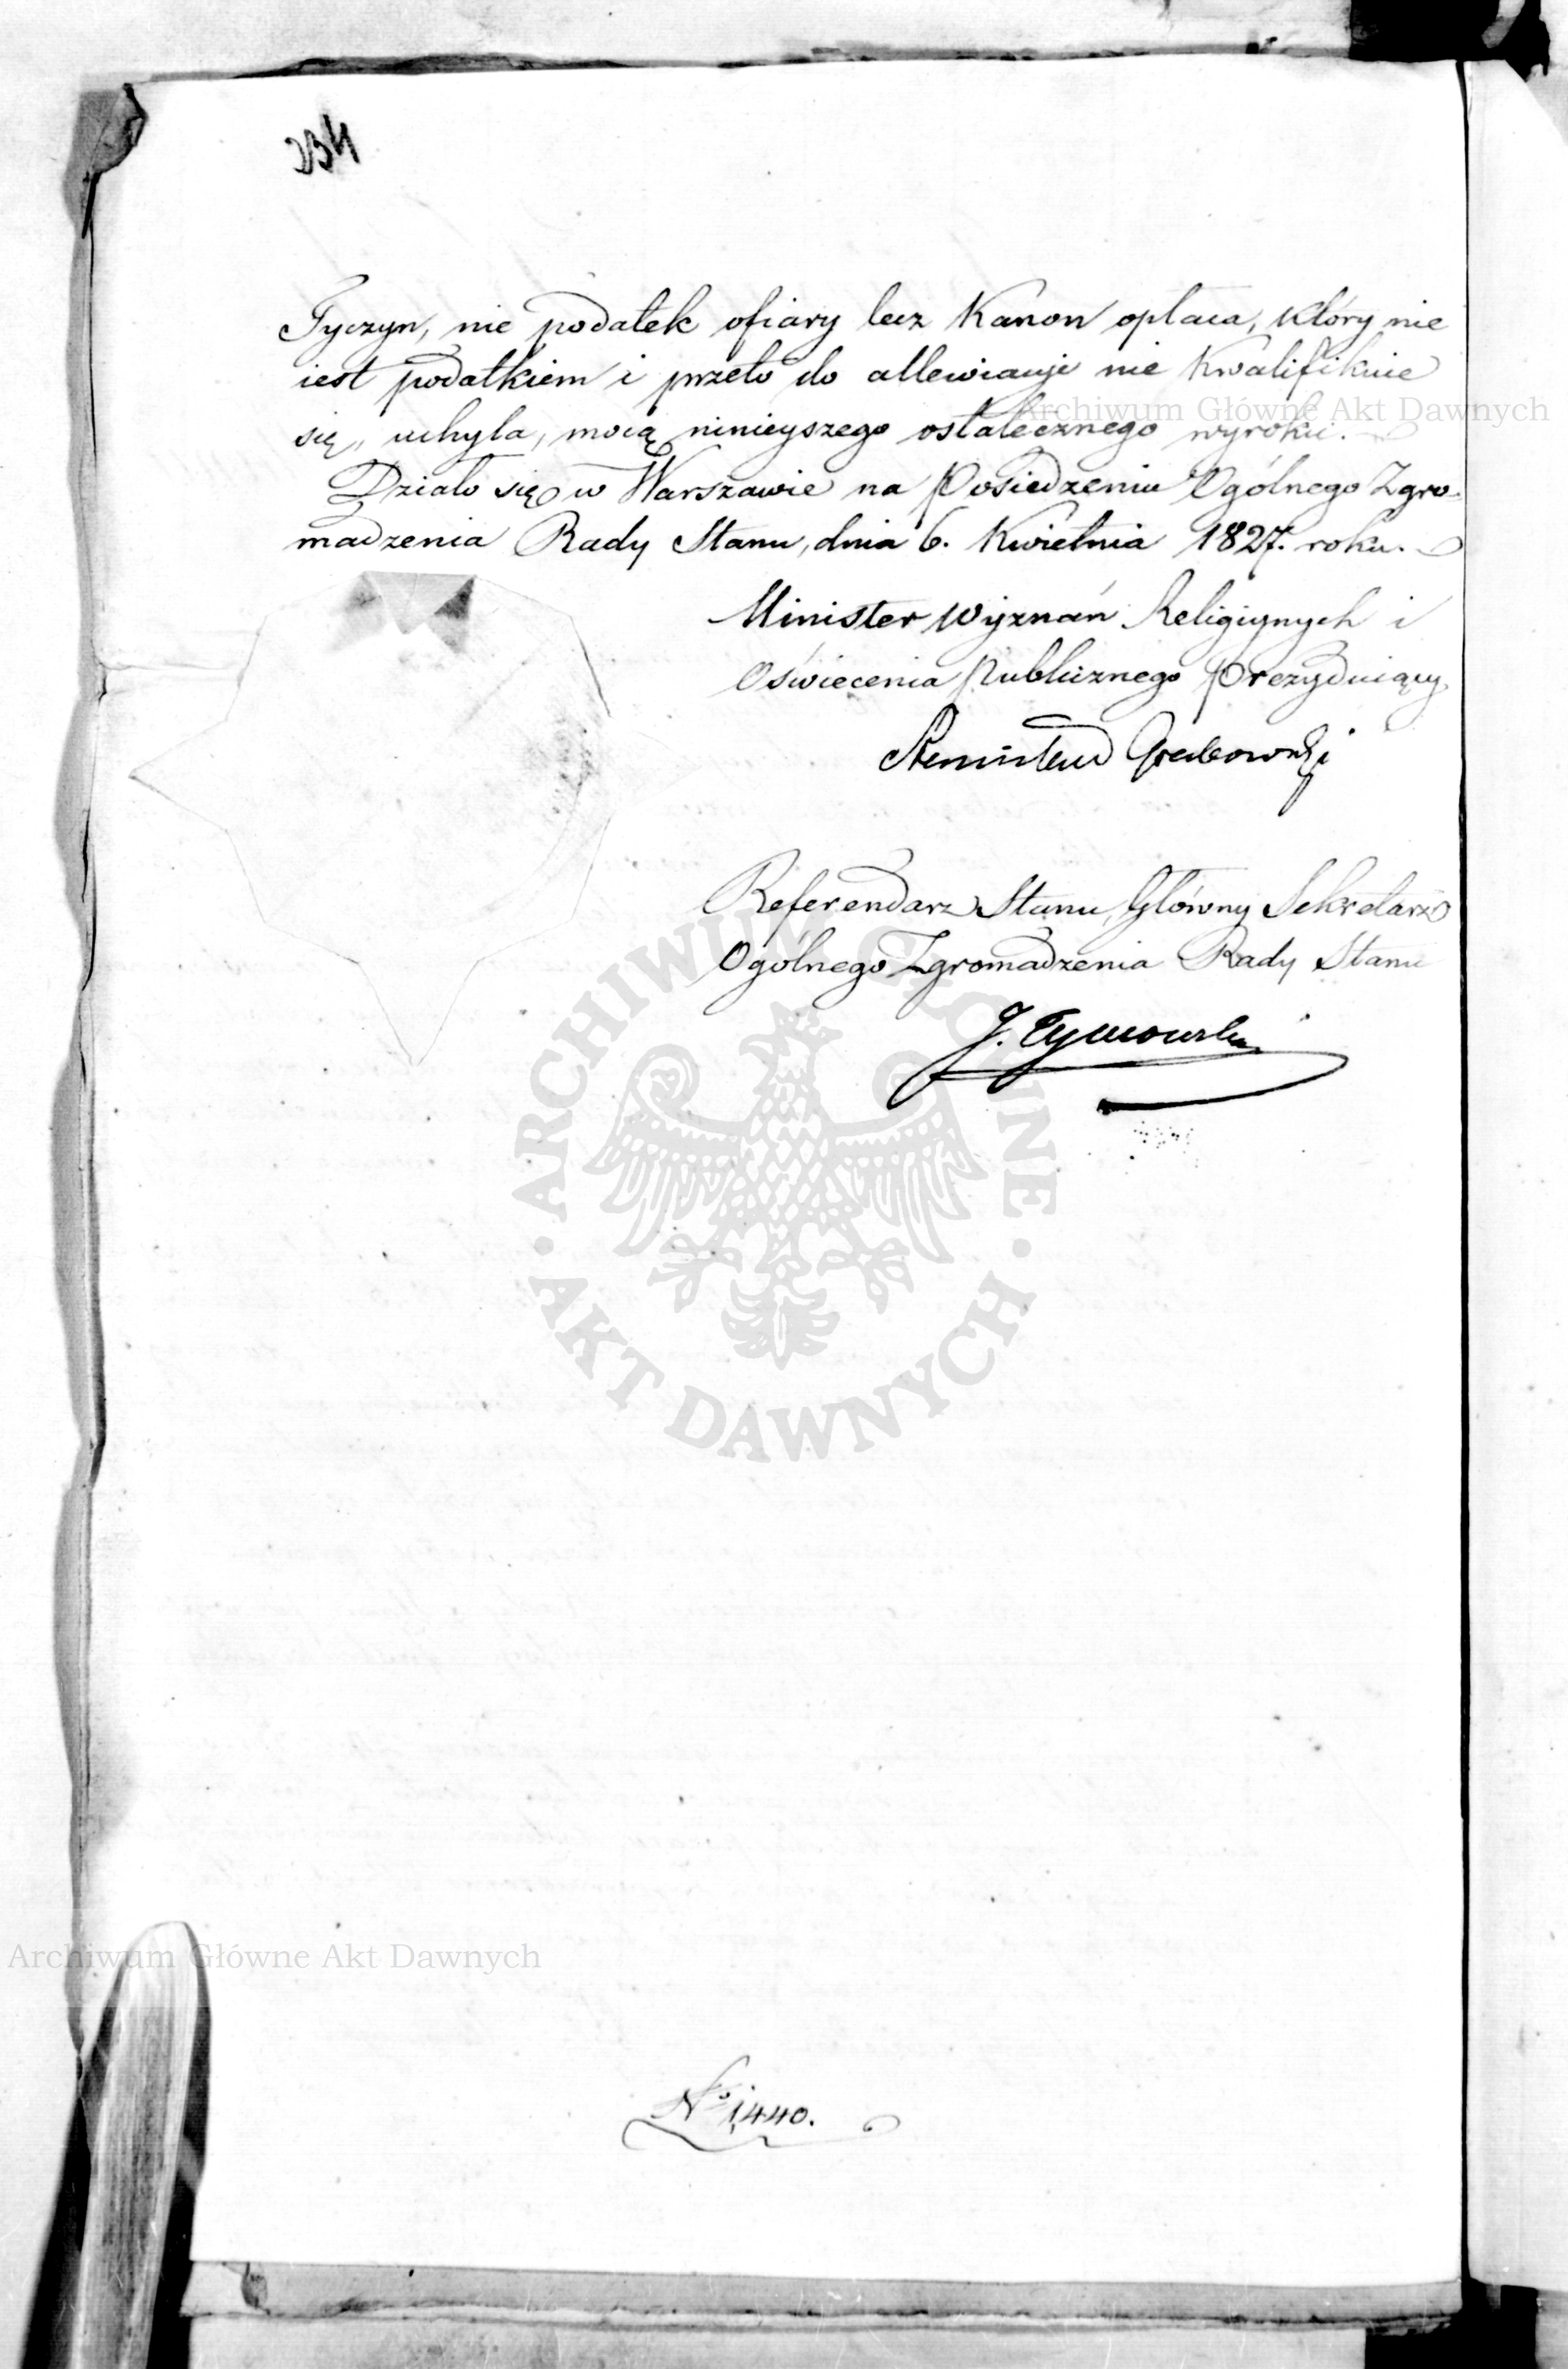 Tyczyn, nie podatek ofiary lecz Kanon opłaca, który nie
iest podatkiem i przeto do allewiacyi nie kwalifikuie
się, uchyla, mocą ninieyszego ostatecznego wyroku.
Działo się w Warszawie na Posiedzeniu Ogólnego Zgro-
madzenia Rady Stanu, dnia 6. Kwietnia 1827. roku.
Minister Wyznań Religiynych i
Oświecenia Publicznego Prezyduiący
Stanisław Grabowski
Referendarz Stanu, Główny Sekretarz
Ogólnego Zgromadzenia Rady Stanu
J. Tymowski
No 1440.
Archiwum Główne Akt Dawnych
ARCHIWUM GŁÓWNE
AKT DAWNYCH
Archiwum Główne Akt Dawnych